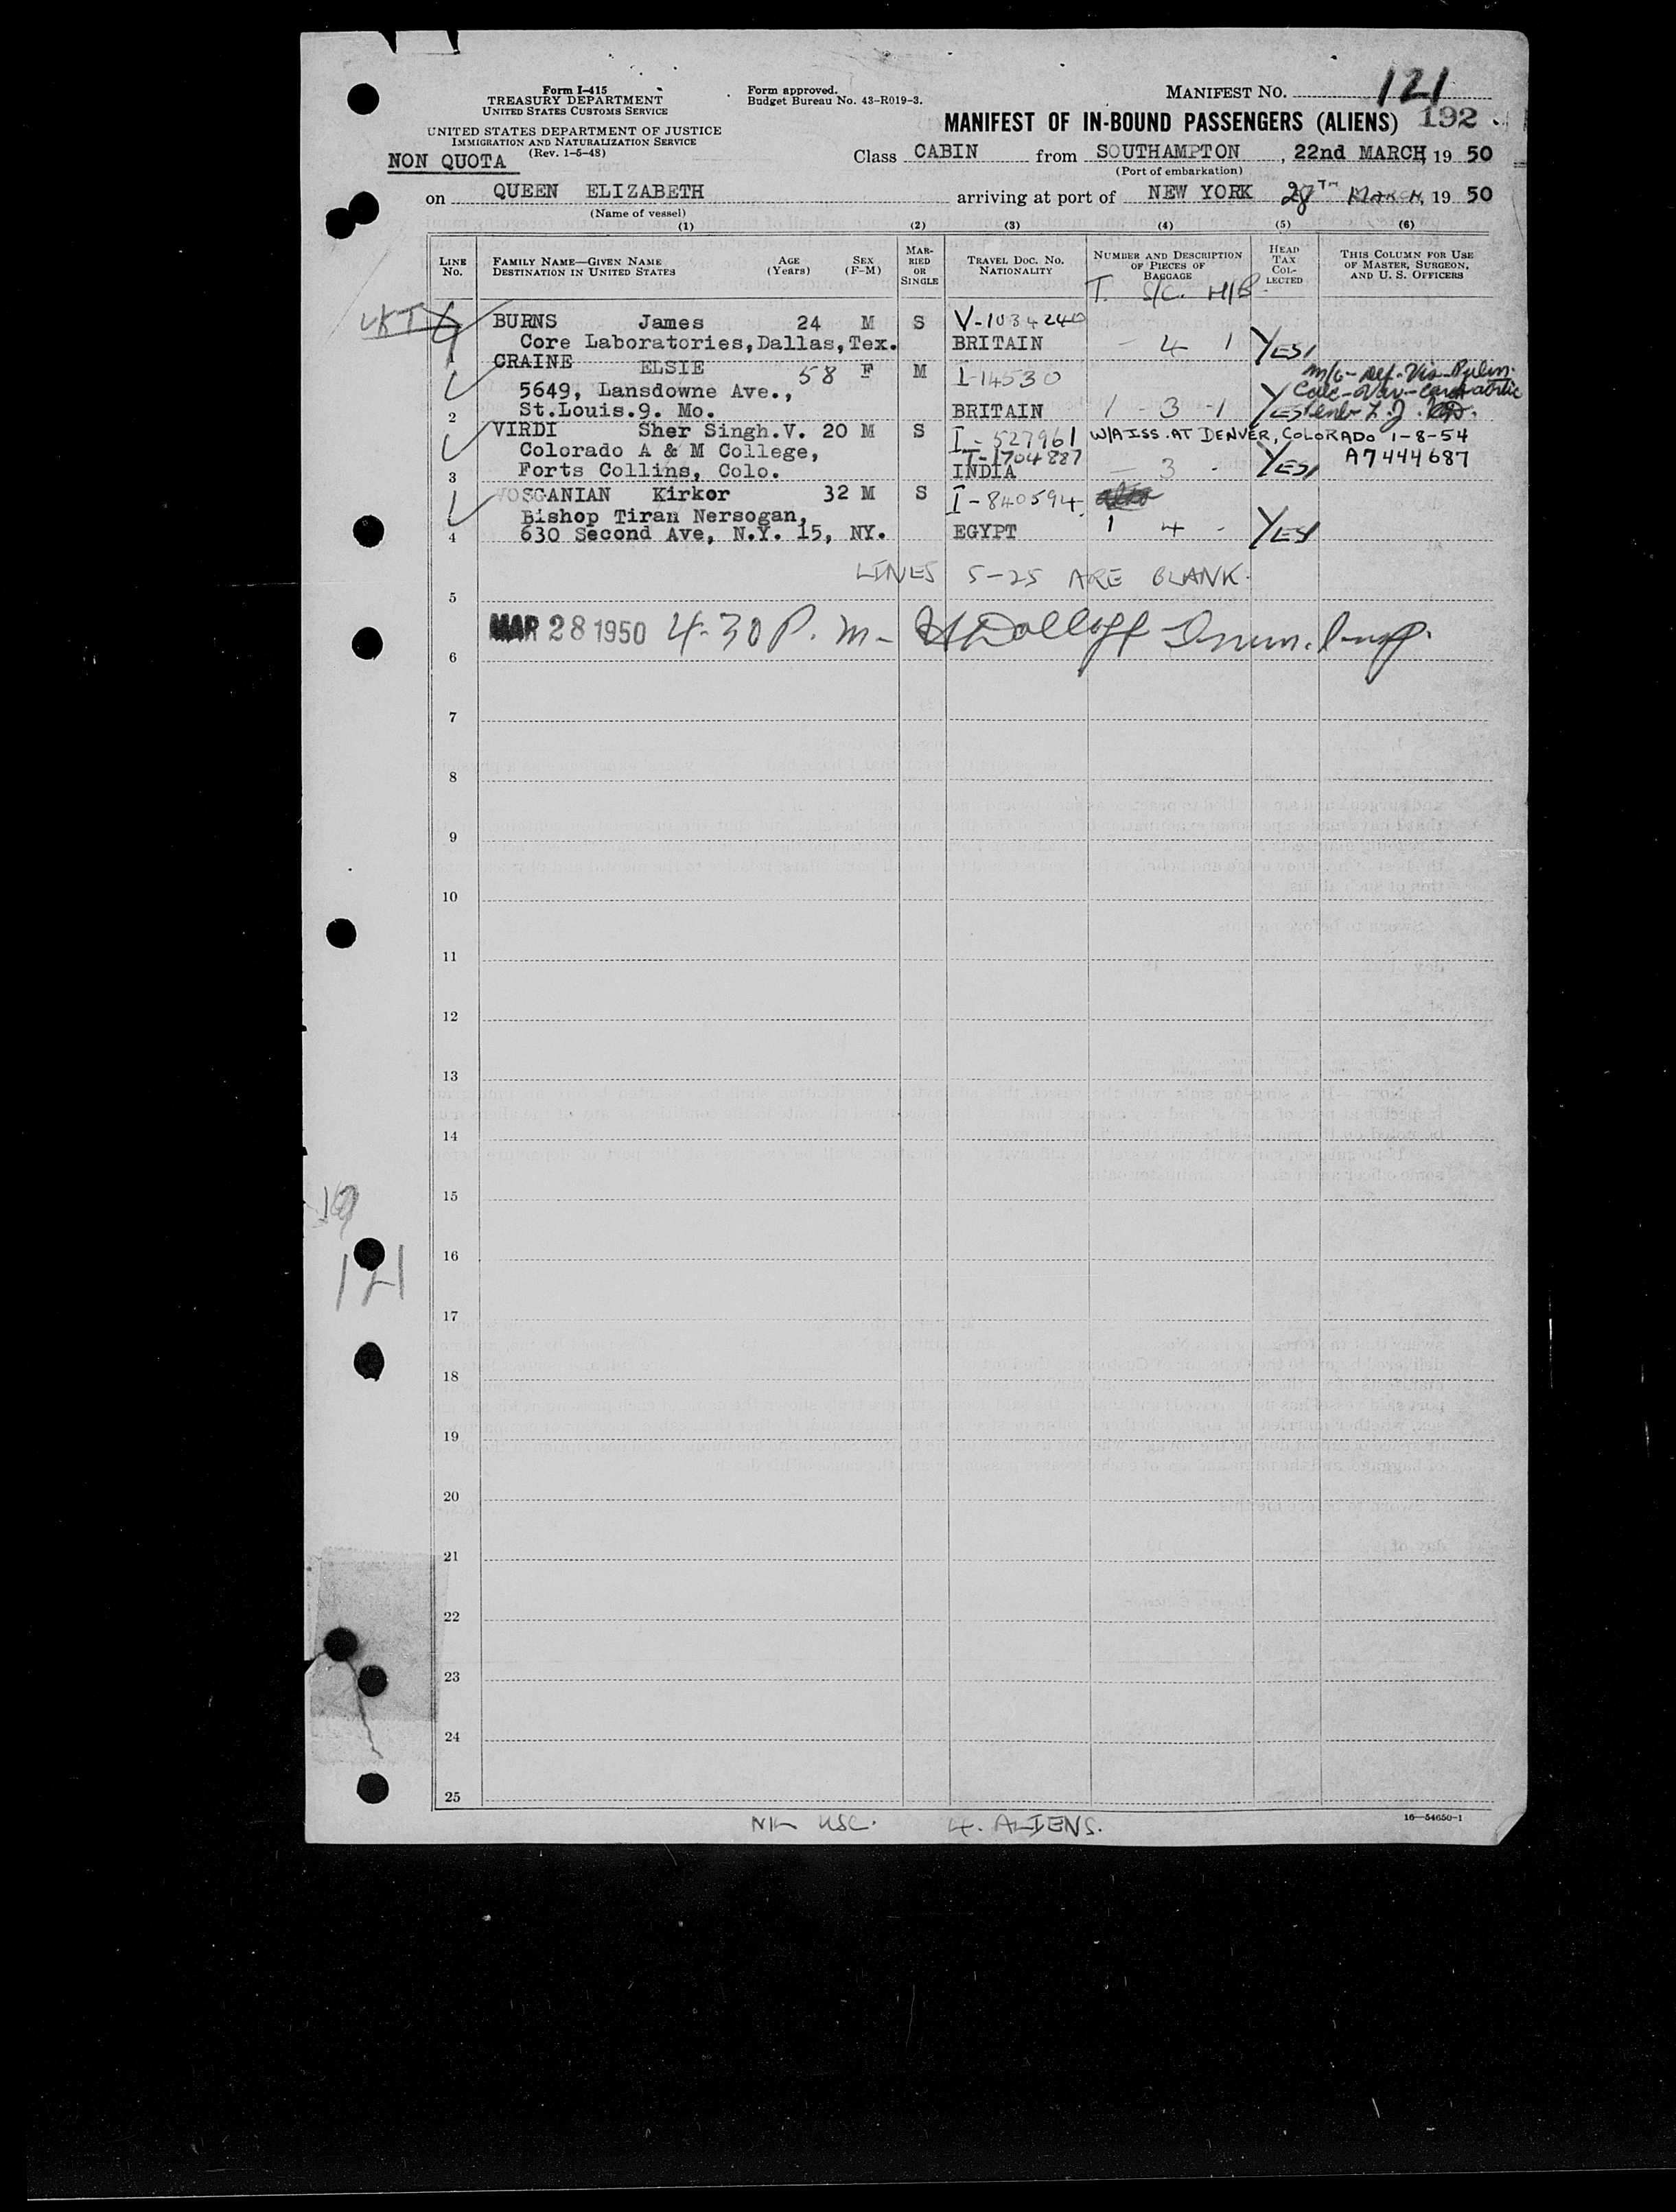 Form I-415
TREASURY DEPARTMENT
UNITED STATES CUSTOMS SERVICE
Form approved.
Budget Bureau No. 43-R019-3.
MANIFEST NO. 121
UNITED STATES DEPARTMENT OF JUSTICE
IMMIGRATION AND NATURALIZATION SERVICE
(Rev. 1-5-48)
MANIFEST OF IN-BOUND PASSENGERS (ALIENS) 192
NON QUOTA
Class CABIN from SOUTHAMPTON, 22nd MARCH, 19 50
(Port of embarkation)
on QUEEN ELIZABETH arriving at port of NEW YORK 28TH MARCH, 19 50
(Name of vessel)
(1) (2) (3) (4) (5) (6)
LINE No. FAMILY NAME—GIVEN NAME DESTINATION IN UNITED STATES AGE (Years) SEX (F-M) MARRIED OR SINGLE TRAVEL DOC. NO. NATIONALITY NUMBER AND DESCRIPTION OF PIECES OF BAGGAGE HEAD TAX COLLECTED THIS COLUMN FOR USE OF MASTER, SURGEON, AND U. S. OFFICERS
T. S/C. H/B
BURNS James 24 M S V-1034240
1 Core Laboratories, Dallas, Tex. BRITAIN - 4 1 YES/
CRAINE ELSIE 58 F M I-14530
5649, Lansdowne Ave.,
2 St.Louis.9. Mo. BRITAIN 1 - 3 - 1 YES
VIRDI Sher Singh.V. 20 M S I-527961 W/A ISS. AT DENVER, COLORADO 1-8-54
Colorado A & M College, T-1704887 A7444687
3 Forts Collins, Colo. INDIA - 3 - YES/
VOSGANIAN Kirkor 32 M S I-840594
Bishop Tiran Nersogan,
4 630 Second Ave, N.Y. 15, NY. EGYPT 1 4 - YES/
LINES 5-25 ARE BLANK.
5
MAR 28 1950 4-30 P. m-
6
7
8
9
10
11
12
13
14
15
121
16
17
18
19
20
21
22
23
24
25
NIL USC. 4. ALIENS.
16—54650-1